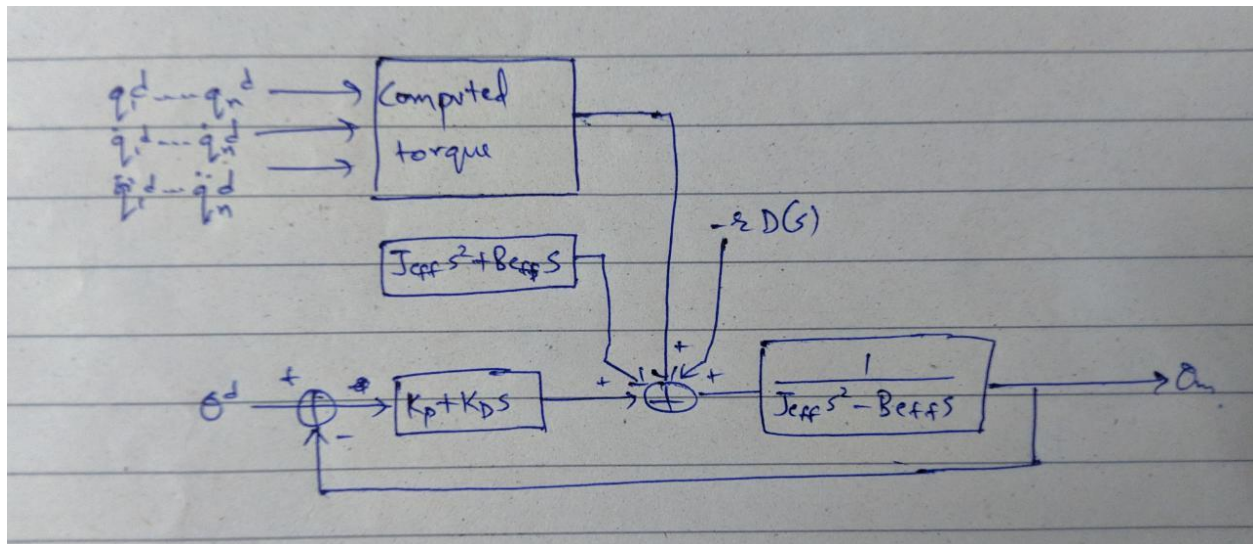 q₁ᵈ ---- qₙᵈ
q̇₁ᵈ ---- q̇ₙᵈ
q̈₁ᵈ --- q̈ₙᵈ
Computed
torque
-r D(s)
J_eff s² + B_eff s
+
θᵈ
+
-
K_P + K_D s
+
+
1
J_eff s² - B_eff s
θₘ